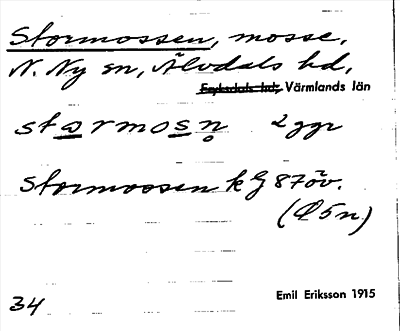 Stormossen, mosse,
N. Ny sn, Älvdals hd,
Fryksdals hd, Värmlands län
starmosn 2 ggr
Stormossen k G 87 öv.
(Ö 5 n.)
34 Emil Eriksson 1915